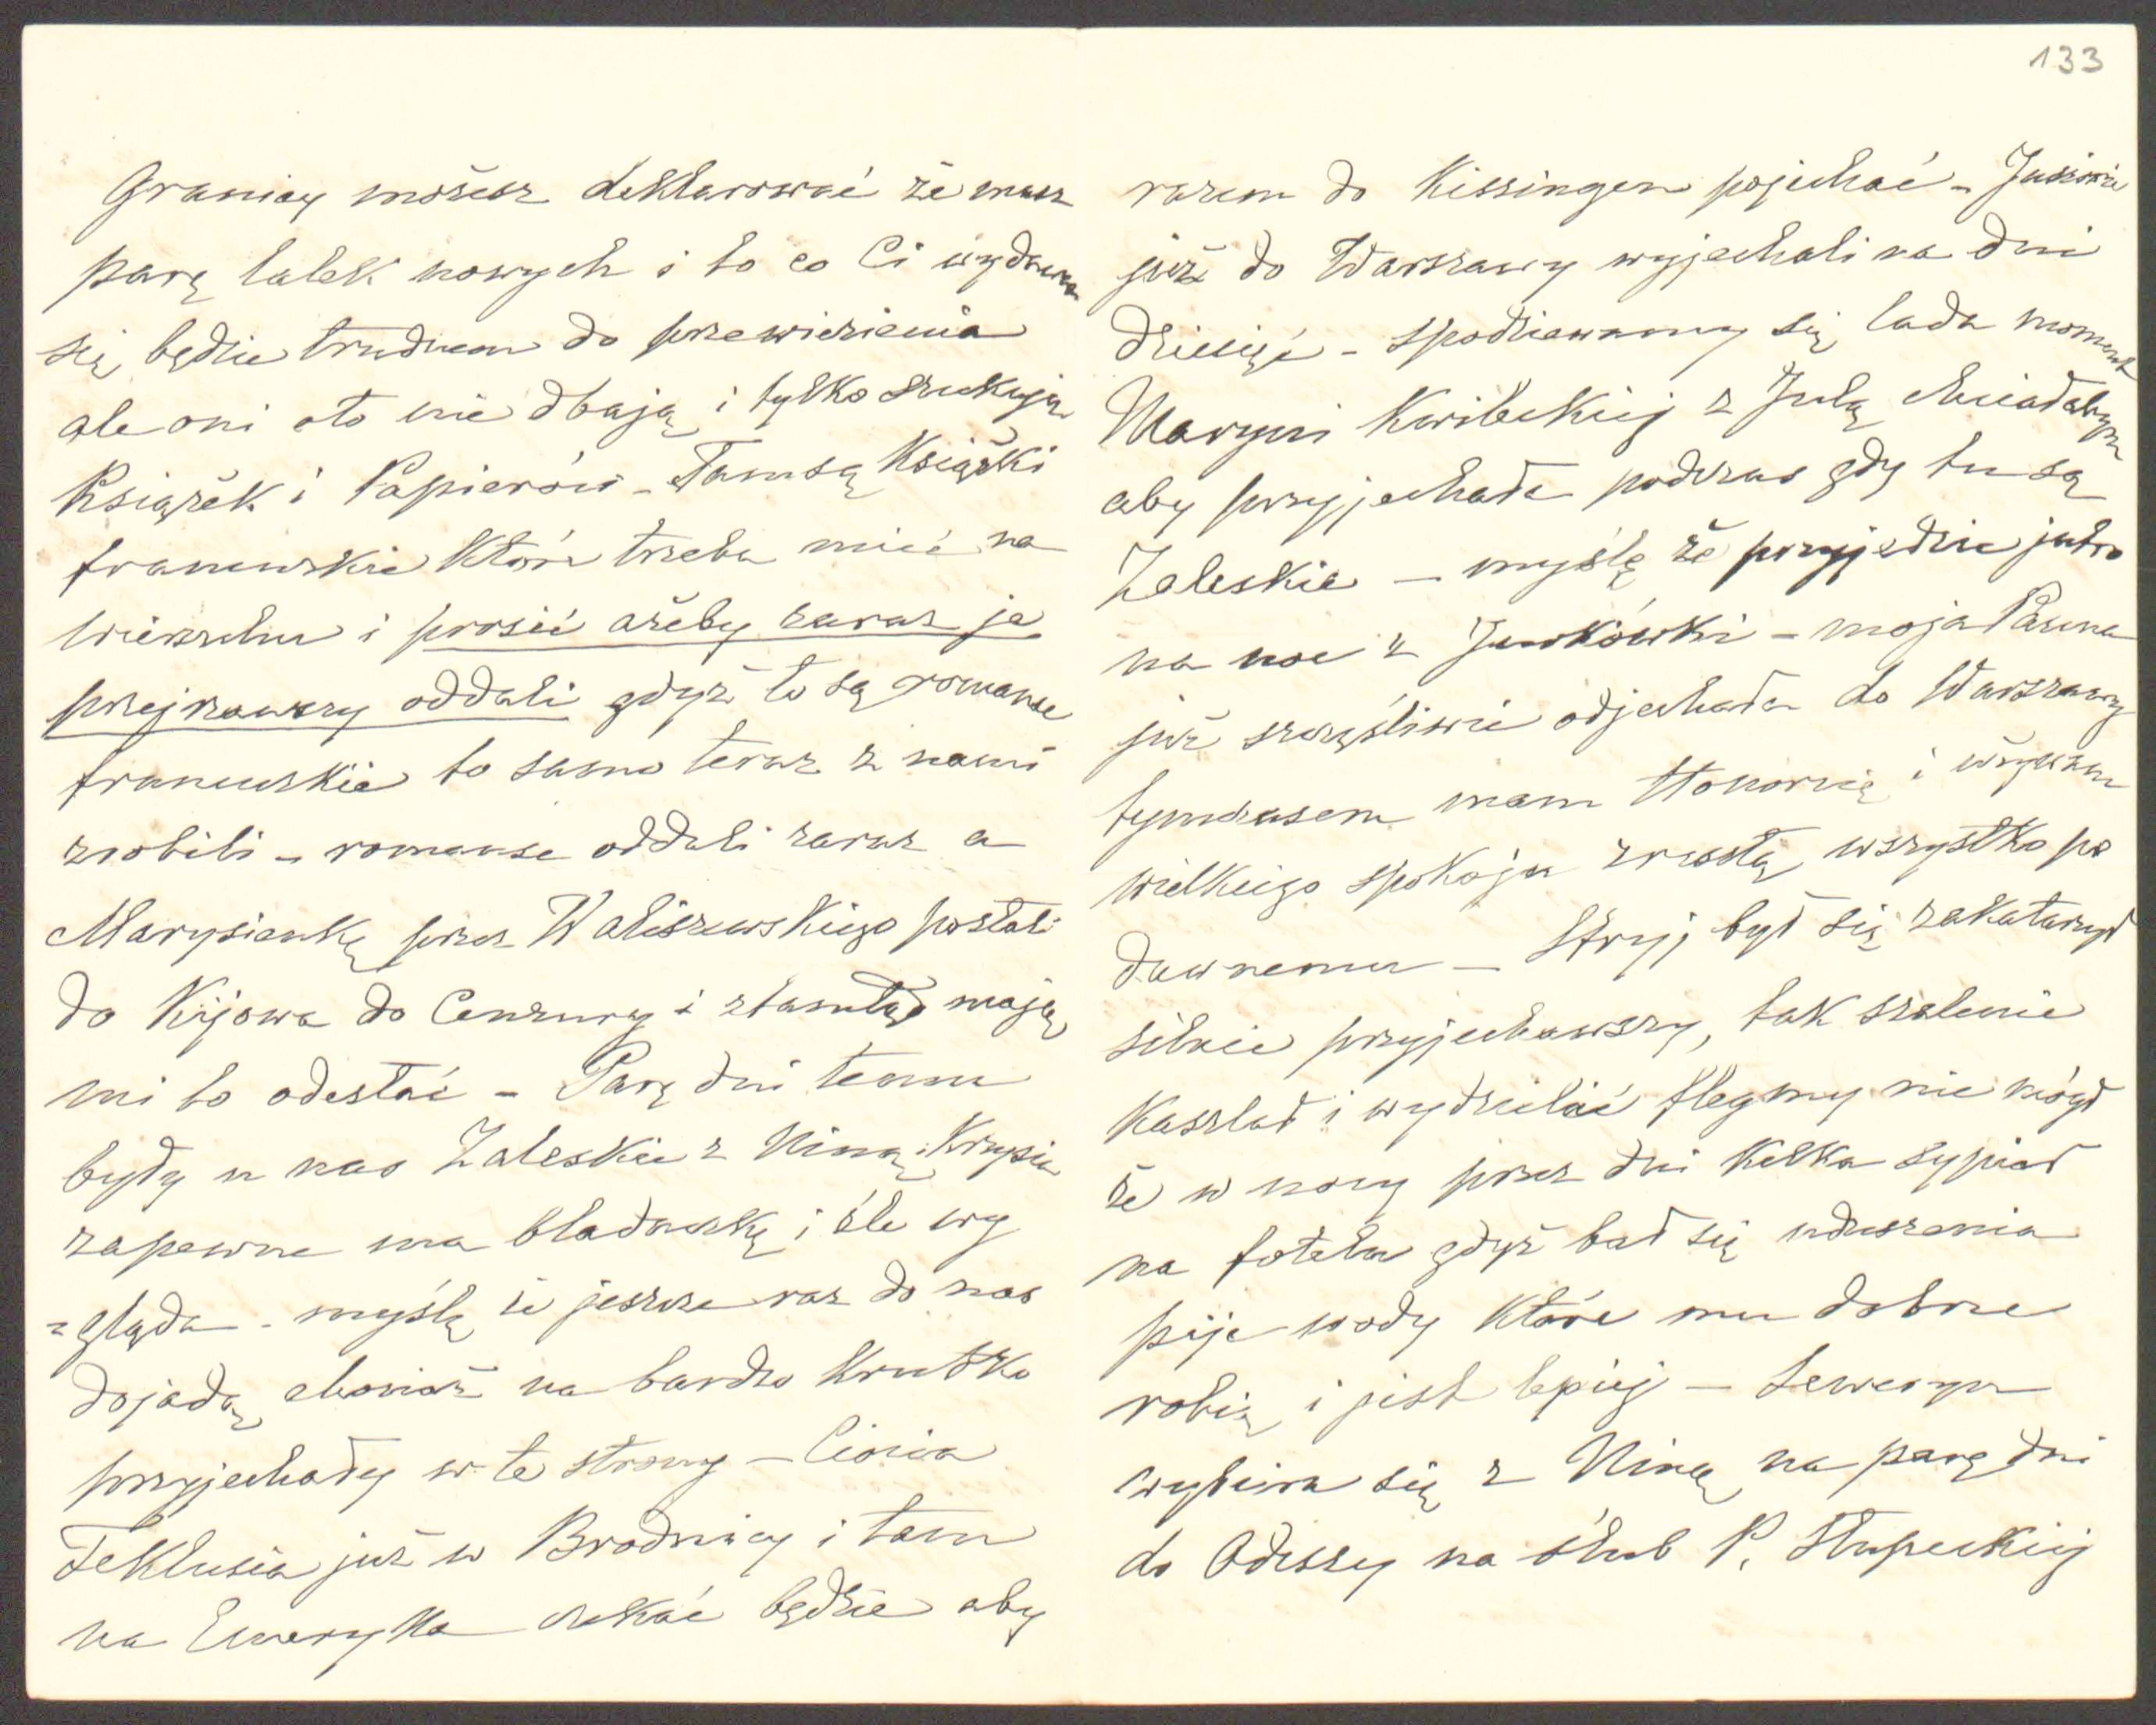 133
Granicy możesz deklarować że masz
parę lalek nowych i to co Ci wydawa
się będzie trudnem do przewiezienia
ale oni oto nie dbają i tylko szukają
Książek i Papierów - Tam są Książki
francuskie które trzeba mieć na
wierzchu i prosić ażeby zaraz je
przejrzawszy oddali gdyż to są romanse
francuskie to samo teraz z nami
zrobili - romanse oddali zaraz a
Marysieńkę przez Waliszewskiego posłali
do Kijowa do Cenzury i ztamtąd mają
mi to odesłać - Parę dni temu
były u nas Zaleskie z Niną, Krysia
zapewne ma bladaczkę i źle wy
=gląda - myślę że jeszcze raz do nas
dojadą chociaż na bardzo krutko
przyjechały w te strony - Ciocia
Teklusia już w Brodnicy i tam
na Emeryka czekać będzie aby
razem do Kissingen pojechać - Juziowie
już do Warszawy wyjechali na dni
dziesięć - spodziewamy się lada moment
Maryni Kwileckiej z Julą chciałabym
aby przyjechała podczas gdy tu są
Zaleskie - myślę że przyjedzie jutro
na noc z Jurkówki - moja Panna
już szczęśliwie odjechała do Warszawy
tymczasem mam Honorcię i używam
wielkiego spokoju zresztą wszystko po
dawnemu - Stryj był się zakatarzył
silnie przyjechawszy, tak szalenie
kaszlał i wydzielić flegmy nie mógł
że w nocy przez dni kilka sypiał
na fotelu gdyż bał się uduszenia
pije wody które mu dobrze
robią i jest lepiej - Seweryn
wybiera się z Niną na parę dni
do Odessy na ślub P. Słupeckiej